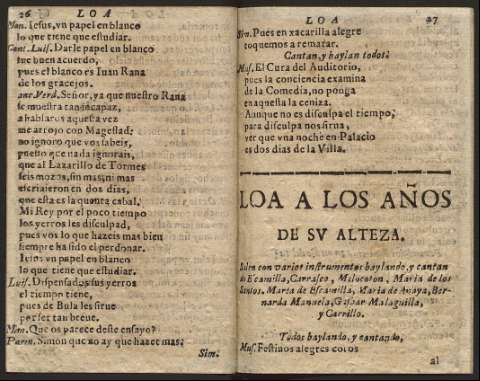 26 LOA
Man. Iesus, vn papel en blanco
lo que tiene que estudiar.
Cont. Luis. Darle papel en blanco
fue buen acuerdo,
pues el blanco es Iuan Rana
de los gracejos.
Verd. Señor, ya que nuestro Rana
se muestra tan incapaz,
a hablaros aquesta vez
me arrojo con Magestad;
no ignoro que vos sabeis,
puesto que nada ignorais,
que al Lazarillo de Tormes
seis mozos, sin mas, ni mas
escriuieron en dos dias,
que esta es la quenta cabal.
Mi Rey por el poco tiempo
los yerros les disculpad,
pues vos lo que hazeis mas bien
siempre ha sido el perdonar.
Iesus vn papel en blanco
lo que tiene que estudiar.
Luis. Dispensad sus yerros
el tiempo tiene,
pues de Bula les sirue
por ser tan breue.
Man. Que os parece deste ensayo?
Simon que no ay que hazer mas;
Sim.
LOA 27
Sim. Pues en xacarilla alegre
toquemos a rematar.
Cantan, y baylan todos.
Mus. El Cura del Auditorio,
pues la conciencia examina
de la Comedia, no ponga
en aquesta la ceniza.
Aunque no es disculpa el tiempo,
para disculpa nos sirua,
ver que vna noche en Palacio
es dos dias de la Villa.
LOA A LOS AÑOS
DE SV ALTEZA.
Salen con varios instrumentos baylando, y cantan
do Escamilla, Carrasco, Malocoton, Maria de los
Santos, Maria de Escamilla, Maria de Anaya, Ber-
narda Manuela, Gaspar Malaguilla,
y Carrillo.
Todos baylando, y cantando,
Mus. Festiuos alegres coros
al